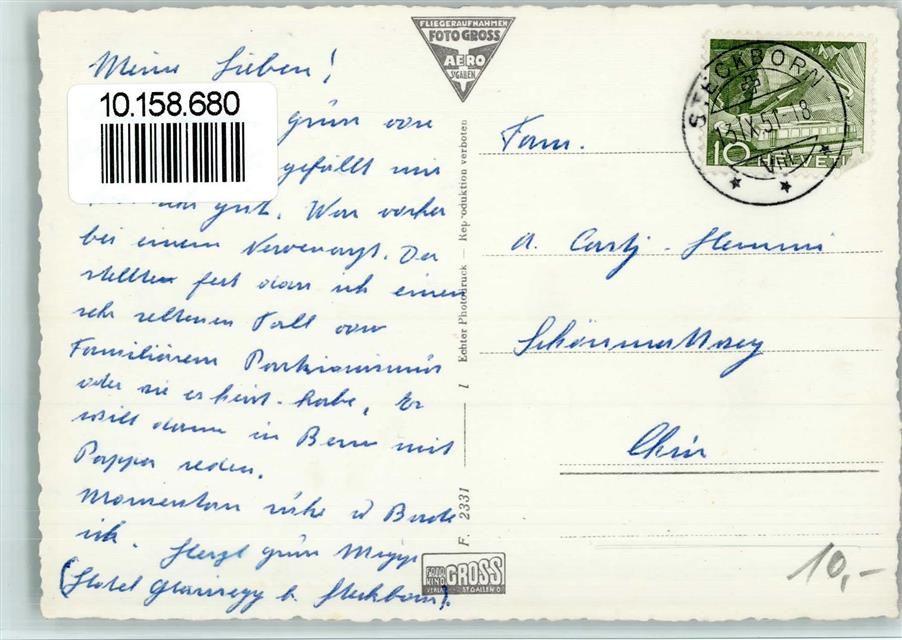 FLIEGERAUFNAHMEN
FOTO GROSS
AERO
ST. GALLEN
Meine Lieben!
10.158.680
grün von
gefällt mir
gut. War vorher
bei einem Nervenarzt. Der
stellte fest dass ich einen
sehr seltenen Fall von
Familiärem Parkinsonismus
oder wie es heisst habe. Er
will dann in Bern mit
Pappa reden.
Momentan ruhe u Bade
ich. Herzl grüsst
(Hotel Glarisegg b. Steckborn).
Echter Photodruck — Reproduktion verboten
F. 2331 1
FOTO
KINO
GROSS
VERLAG ST. GALLEN O
STECKBORN
13.IX.51-18
10 HELVETIA
Fam.
A.
Chur
10,-